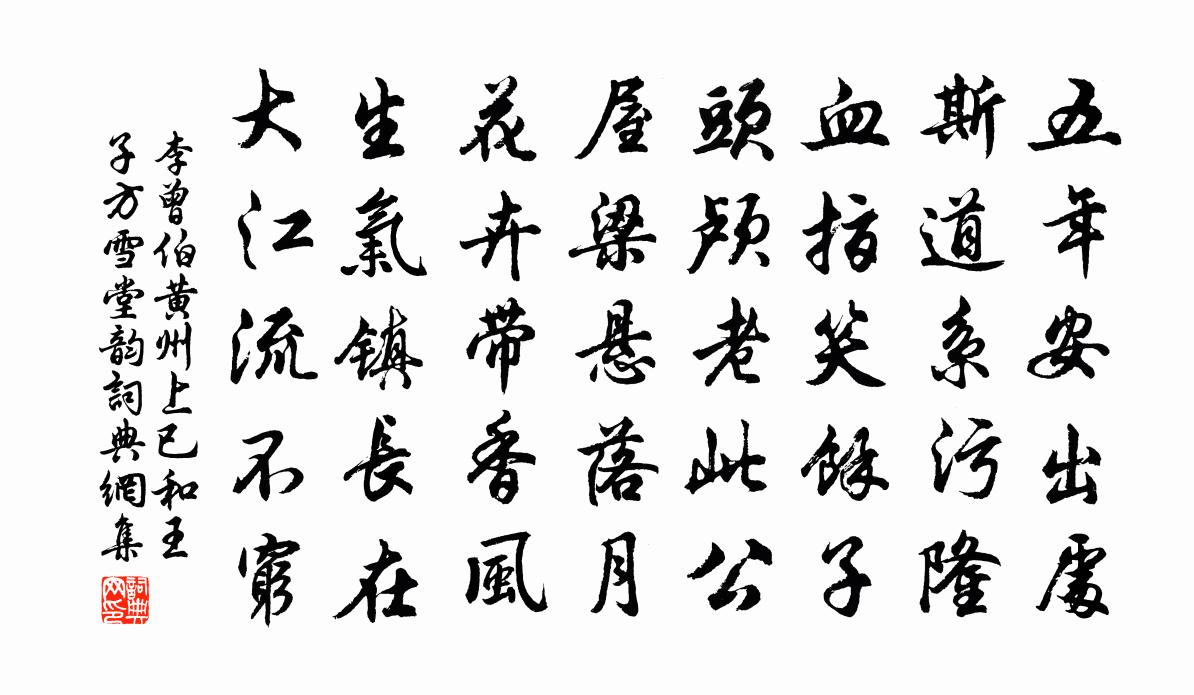 五年安出處
斯道系污隆
血指笑餘子
頭顱老此公
屋梁悬落月
花卉带香風
生氣鎮長在
大江流不窮
李曾伯黄州上巳和王
子方雪堂韵詞典網集
詞典网印